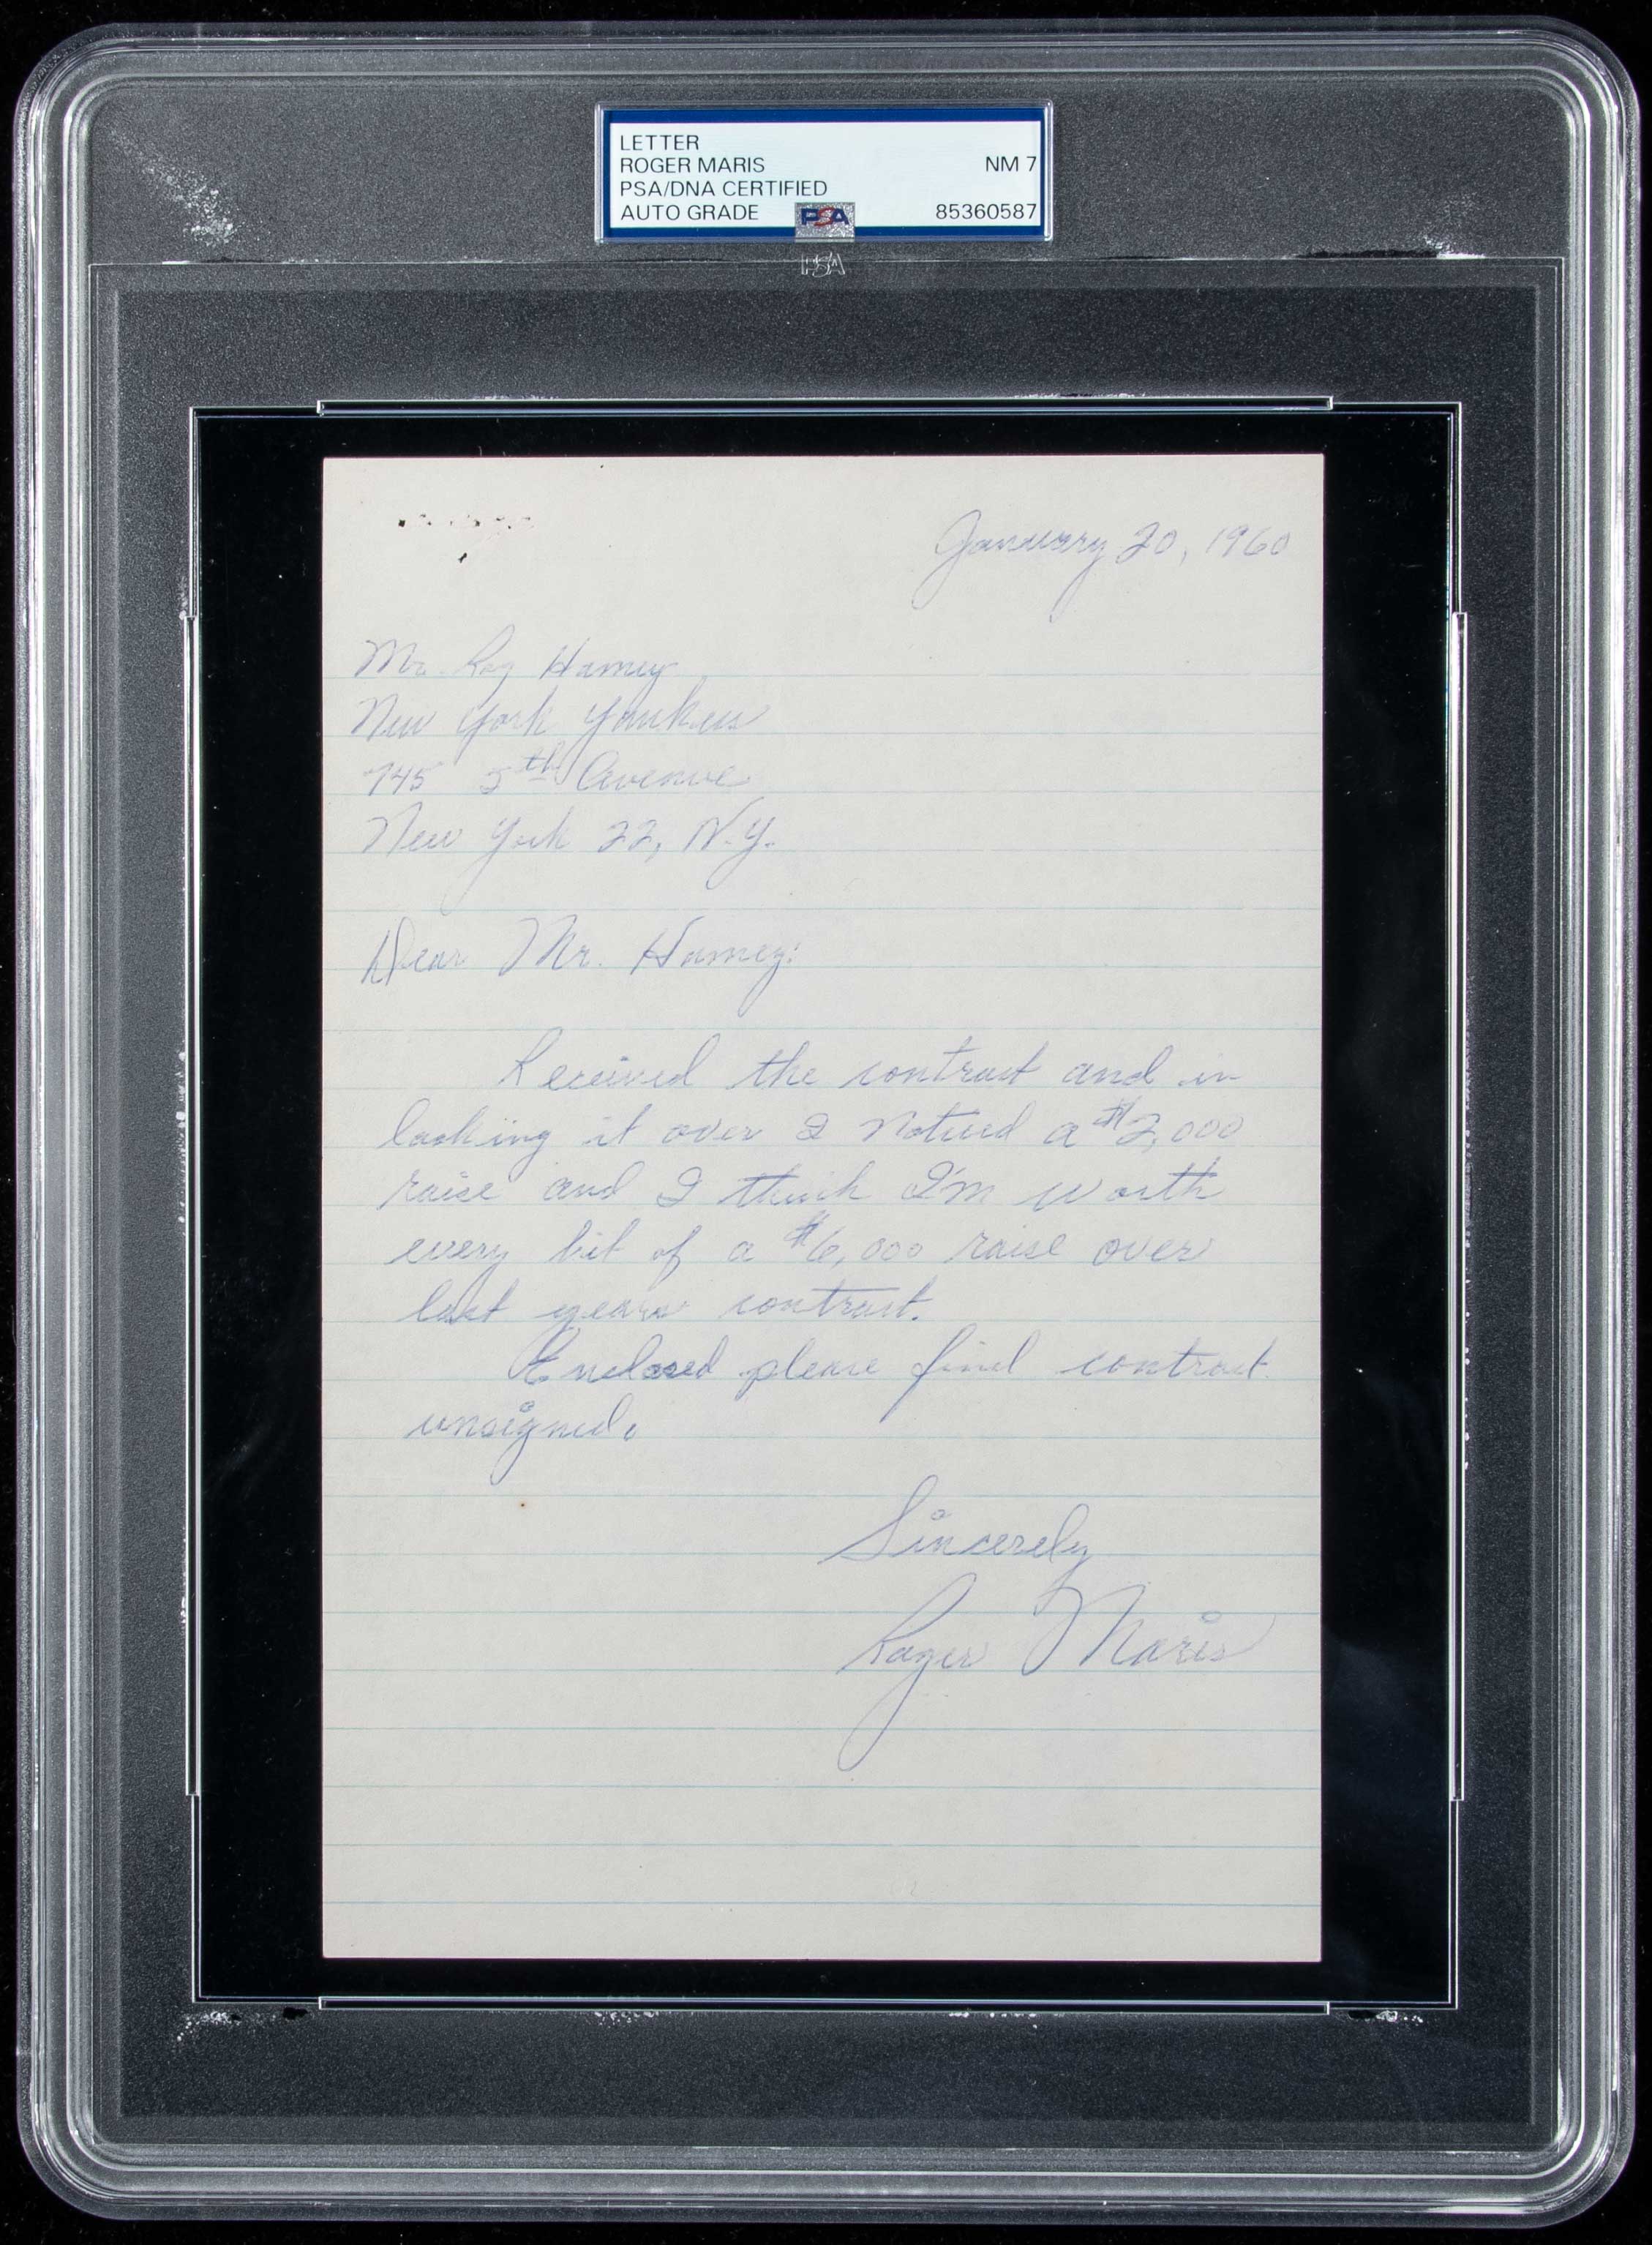 LETTER
ROGER MARIS NM 7
PSA/DNA CERTIFIED
AUTO GRADE PSA 85360587
PSA
January 20, 1960
Mr. Roy Hamey
New York Yankees
745 5th Avenue
New York 22, N.Y.
Dear Mr. Hamey:
Received the contract and in
looking it over I noticed a $2,000
raise and I think I'm worth
every bit of a $6,000 raise over
last years contract.
Enclosed please find contract
unsigned.
Sincerely
Roger Maris